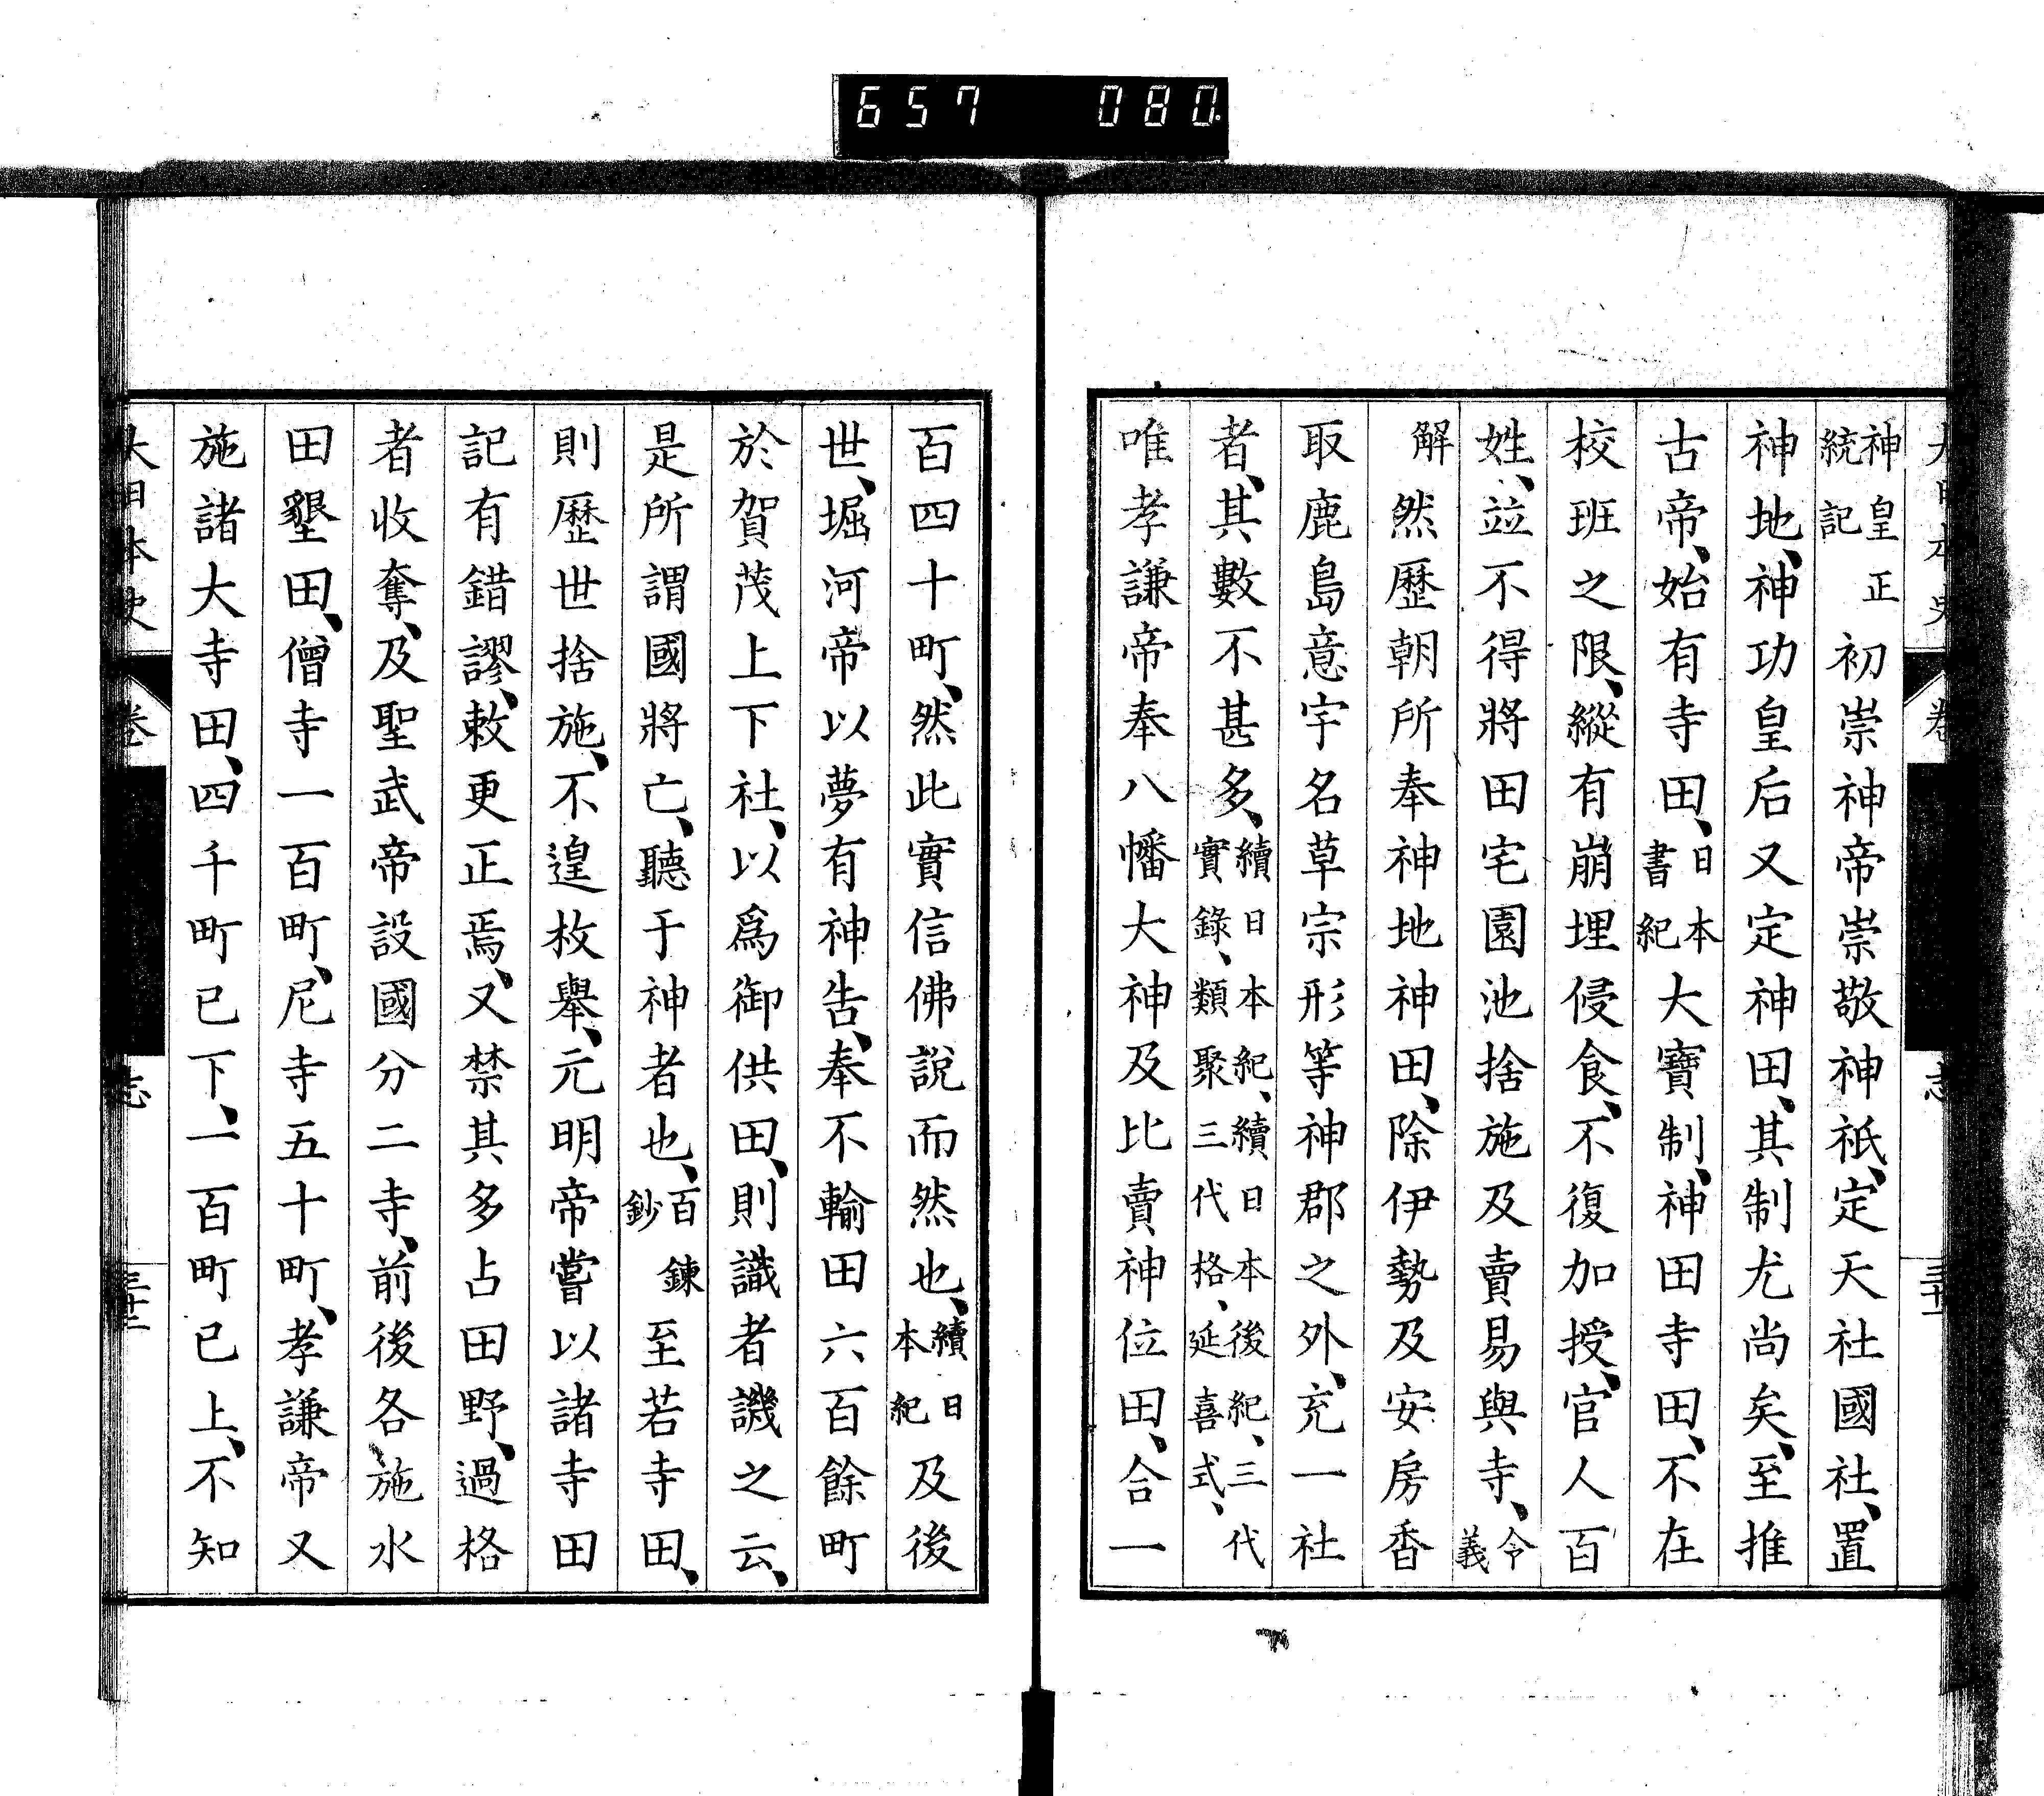 657 080
神皇正統記初崇神帝崇敬神祇、定天社國社、置
神地、神功皇后又定神田、其制尤尚矣、至推
古帝、始有寺田、日本書紀大寶制、神田寺田、不在
校班之限、縱有崩埋侵食、不復加授、官人百
姓、竝不得將田宅園池捨施及賣易與寺、令義
解然歷朝所奉神地神田、除伊勢及安房香
取鹿島意宇名草宗形等神郡之外、充一社
者、其數不甚多、續日本紀、續日本後紀、三代實錄、類聚三代格、延喜式、
唯孝謙帝奉八幡大神及比賣神位田、合一
百四十町、然此實信佛說而然也、續日本紀及後
世、堀河帝以夢有神告、奉不輸田六百餘町
於賀茂上下社、以爲御供田、則識者譏之云、
是所謂國將亡、聽于神者也、百鍊鈔至若寺田、
則歷世捨施、不遑枚舉、元明帝嘗以諸寺田
記有錯謬、敕更正焉、又禁其多占田野、過格
者收奪、及聖武帝設國分二寺、前後各施水
田墾田、僧寺一百町、尼寺五十町、孝謙帝又
施諸大寺田、四千町已下、一百町已上、不知
大日本史 卷 志